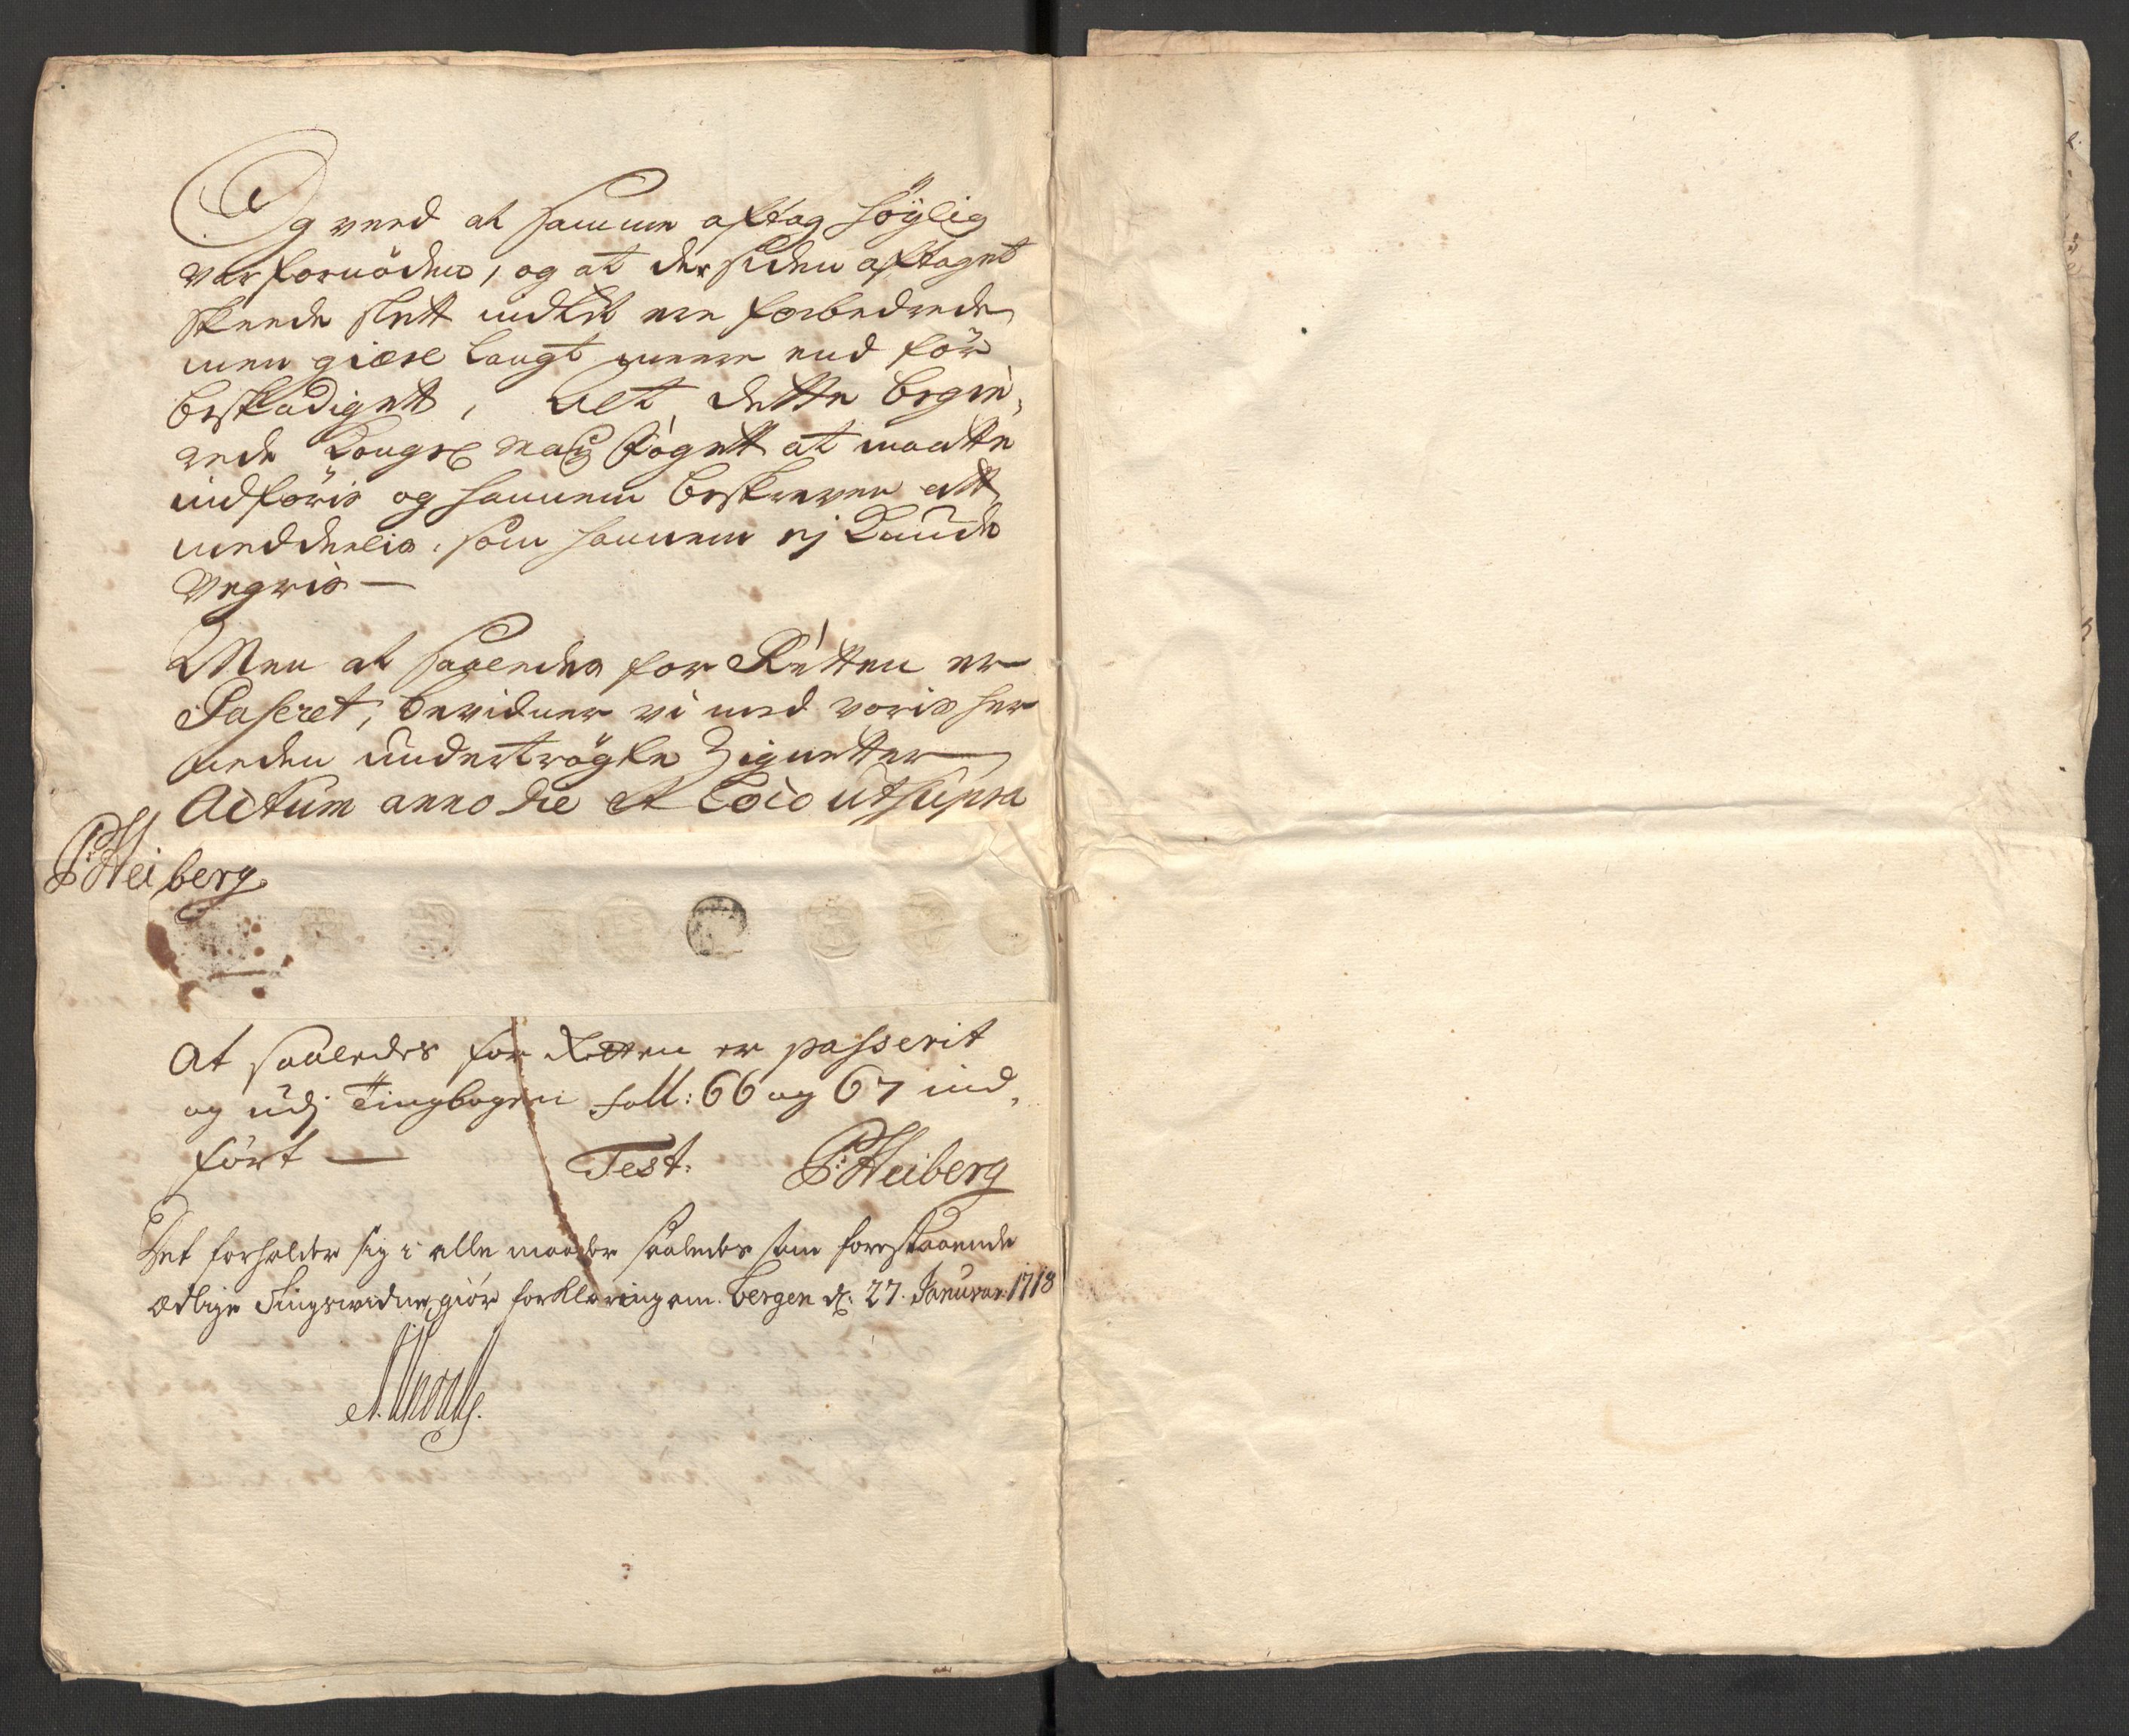 Og veed at samme aftag höylig
var fornöden, og at der siden aftaget
skeede slett indtet ere forbedrede
men giære langt meere end för
beskadigett, Alt dette begie,
rede Kongs May Fogett at maatte
indföris og hannem beskreven att
meddeelis, som hannem ej Kunde
Vegris —
Men at saaledes for Rétten er
Passeret, bevidner vi med voris her
neden undertrögte Zignetter
Actum anno die et Loco ut supra
P: Heiberg
At saaledes for Retten er passerit
og udj Tingbogen foll: 66 og 67 ind,
fört — Test. P: Heiberg
Det forholder sig i alle maader saaledes som forestaaende
ædlige Tingswidne giör forklaring om. Bergen d: 27. Januar: 1718